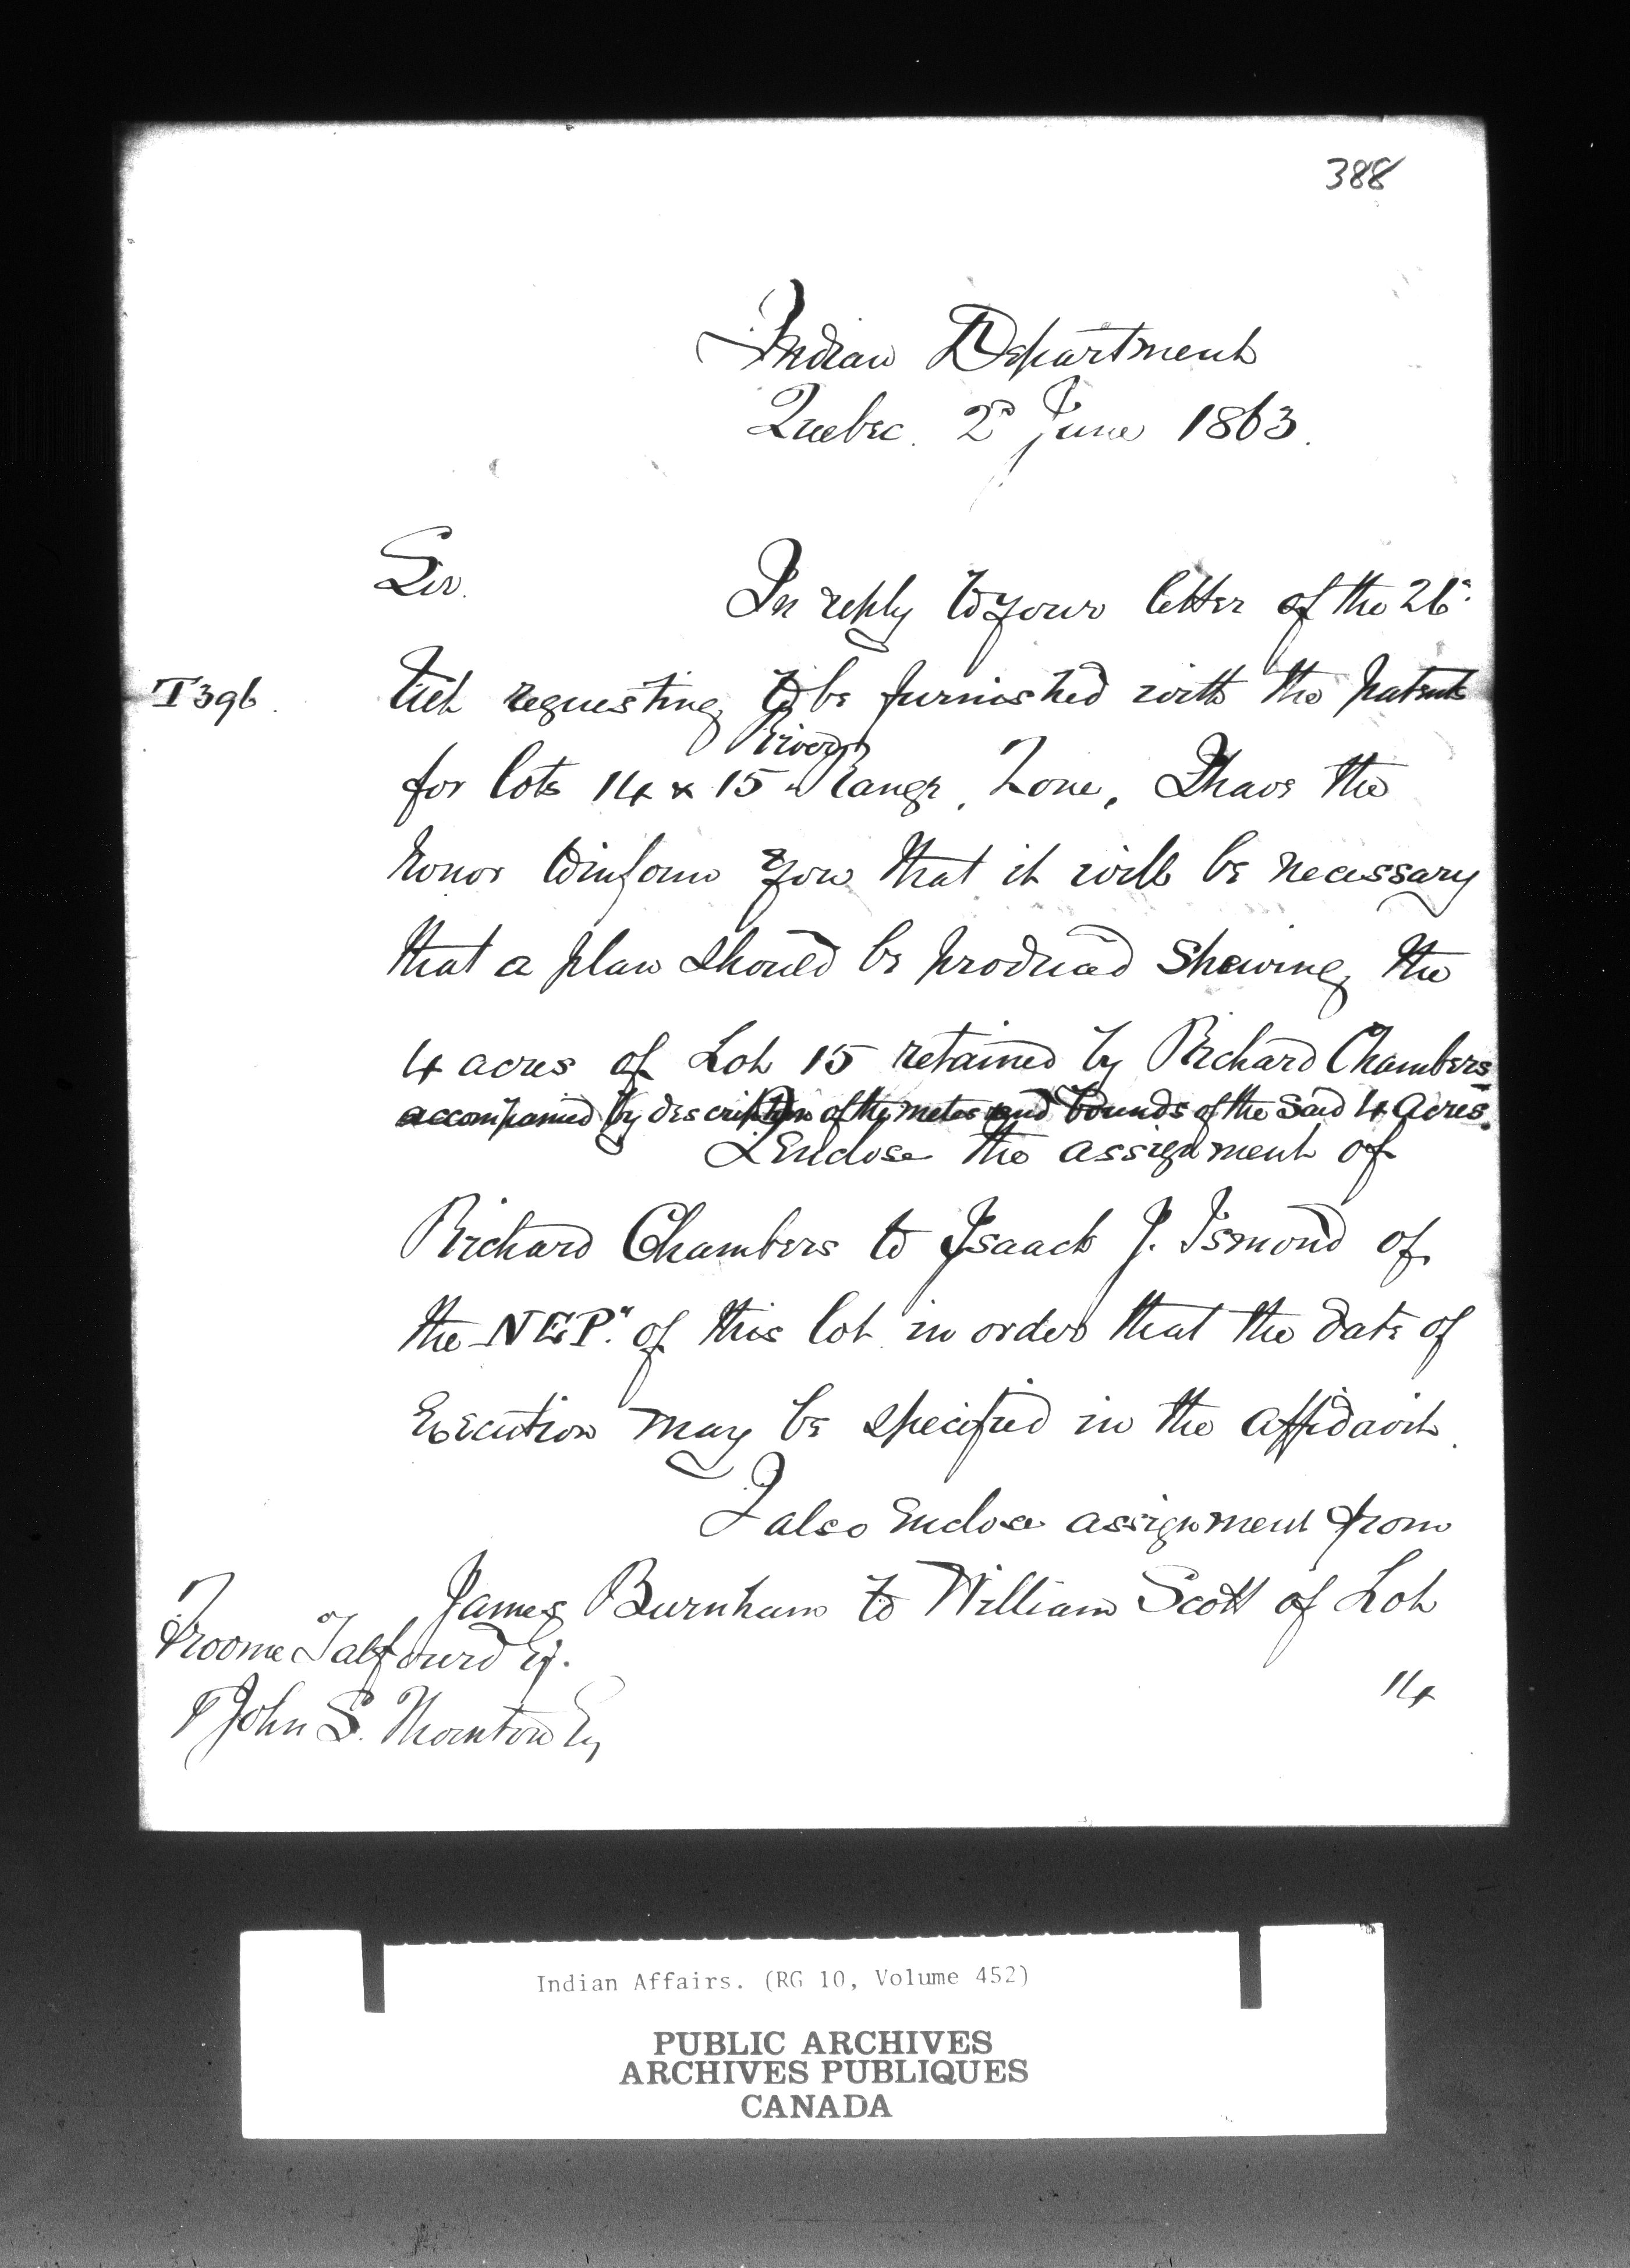 388
Indian Department
Quebec. 2d June 1863.
Sir.
In reply to your letter of the 26"
T396.
Ult requesting to be furnished with the patents
River
for lots 14 & 15 Range, Zone, I have the
honor to inform you that it will be necessary
that a plan should be produced shewing the
4 acres of Lot 15 retained by Richard Chambers
accompanied by description of the metes and bounds of the said 4 Acres.
I Enclose the assignment of
Richard Chambers to Isaack J. Ismond of
the NEP." of this lot in order that the date of
Execution may be specified in the affidavit.
I also Enclose assignment from
James Burnham to William Scott of Lot
Froome Talfourd Esq.
John S. Thornton Esq
14
Indian Affairs. (RG 10, Volume 452)
PUBLIC ARCHIVES
ARCHIVES PUBLIQUES
CANADA